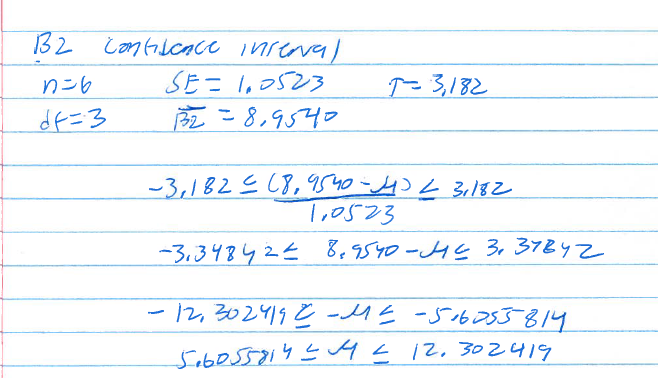 B2 confidence interval
n=6 SE = 1.0523 T=3,182
df=3 B2 = 8.9540
-3,182 ≤ (8.9540-μ) ≤ 3,182
1.0523
-3.34842 ≤ 8.9540-μ ≤ 3.37842
-12.302419 ≤ -μ ≤ -5.6055814
5.6055814 ≤ μ ≤ 12.302419